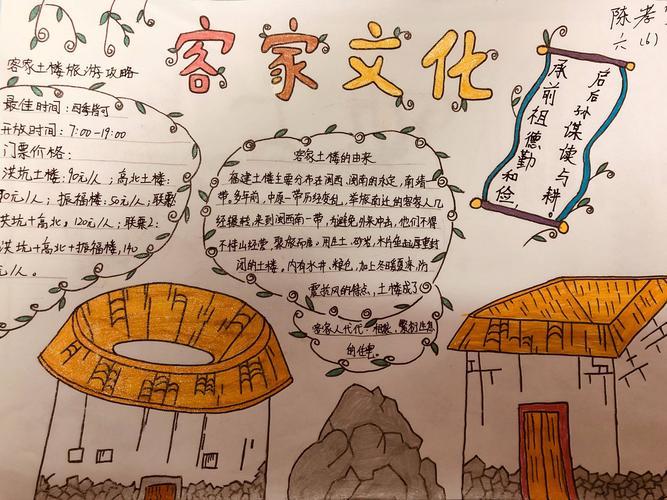 客家文化
陈孝
六(1)
客家土楼旅游攻略
最佳时间：四季皆可
开放时间：7:00-19:00
门票价格：
洪坑土楼：90元/人；高北土楼：
元/人；振福楼：50元/人；联票
洪坑+高北：120元/人；联票2：
洪坑+高北+振福楼，140
元/人。
客家土楼的由来
福建土楼主要分布在闽西、闽南的永定，南靖一
带。多年前，中原一带历经变乱，举族南迁的客家人几
经辗转，来到闽西南一带，为避免外来冲击，他们不得
不恃山经营，聚族而居。用生土、砂岩、木片垒砌厚重封
闭的土楼，内有水井、粮仓，加上冬暖夏凉、防
震抗风的特点，土楼成了
客家人代代相袭，繁衍生息
的住宅。
承前祖德勤和俭
启后孙谋读与耕。